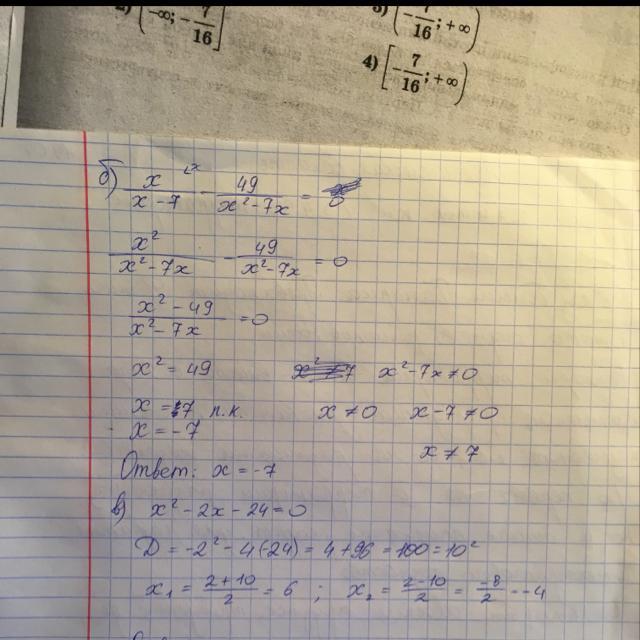 2) (-∞; -7/16]
3) (-7/16; +∞)
4) [-7/16; +∞)
б) x/(x-7) - 49/(x²-7x) = 0
x²/(x²-7x) - 49/(x²-7x) = 0
(x²-49)/(x²-7x) = 0
x² = 49 x²-7x≠0
x = 7 п.к. x ≠ 0 x-7 ≠ 0
x = -7
x ≠ 7
Ответ: x = -7
в) x² - 2x - 24 = 0
D = -2² - 4(-24) = 4 + 96 = 100 = 10²
x₁ = (2+10)/2 = 6 ; x₂ = (2-10)/2 = -8/2 = -4